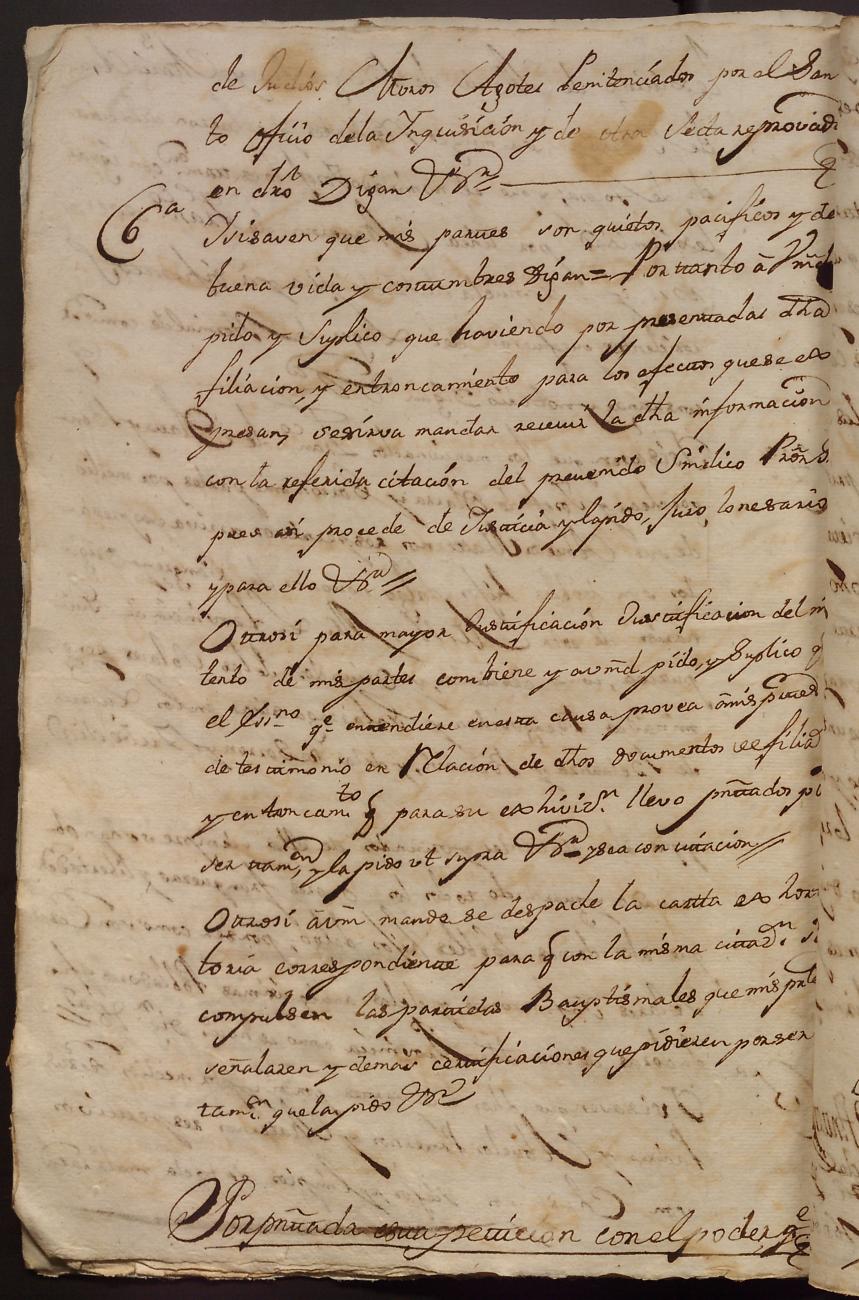 de Judios Moros Agotes Penitenciados por el San
to ofizio dela Inquisición y de otra Secta reprovada
en dro Digan &ra
6a
Isisaven que mis partes son quietos pacificos y de
buena vida y costumbres digan = Por tanto á Vmd
pido y suplico que haviendo por presentadas dha
filiacion, y entroncamiento para los efectos que se ex
presan, sesirva mandar recevir la dha informacion
con la referida citación del prevenido Sindico Prőr
pues asi procede de Justicia y la pido, juro, lonesario
y para ello &ra
Otrosi para mayor Justificación Justificacion del in
tento de mis partes combiene y avmd pido, y suplico q
el Essno qe entendiere enesta causa provea ámis partes
de testimonio en Relación de dhos documentos de filia
y entroncamto q para su exhivizn llevo pntados pr
ser tamvn y la pido ut supra &ra y sea con citacion
Otrosi ávm mande se despache la cartta exhor
toria correspondiente para q con la misma cittadn se
compulsen las partidas Bauptismales que mis partes
señalaren y demas certificaciones que pidieren por ser
tamvn que la pido &ra
Por pntada esta peticion con el poder qe